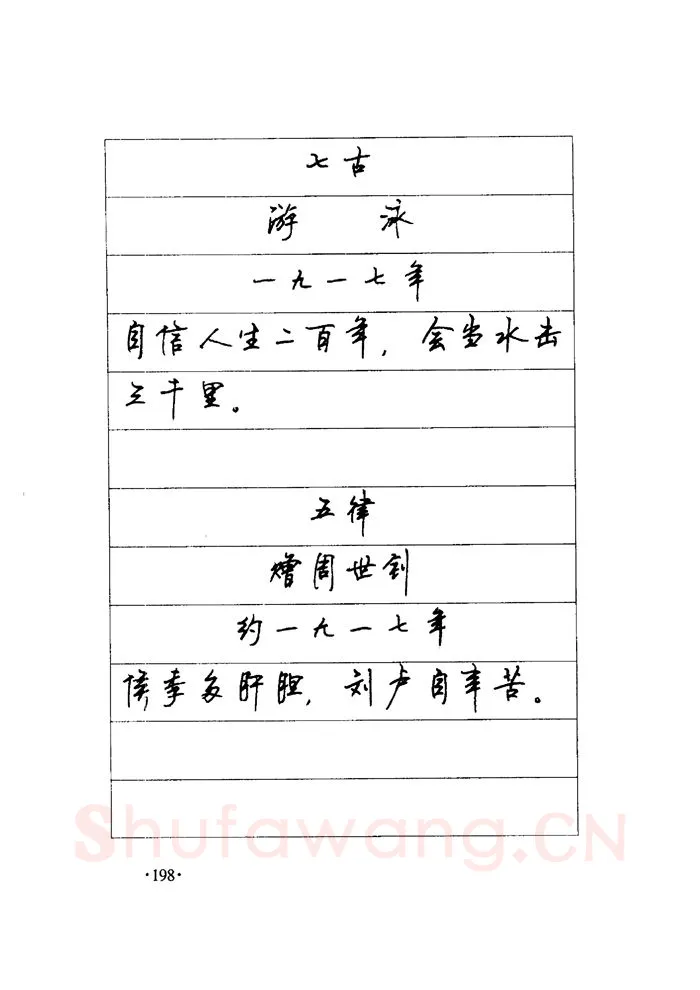 七古
游 泳
一九一七年
自信人生二百年，会当水击
三千里。
五律
赠周世钊
约一九一七年
侯季多肝胆，刘卢自辛苦。
Shufawang.CN
·198·